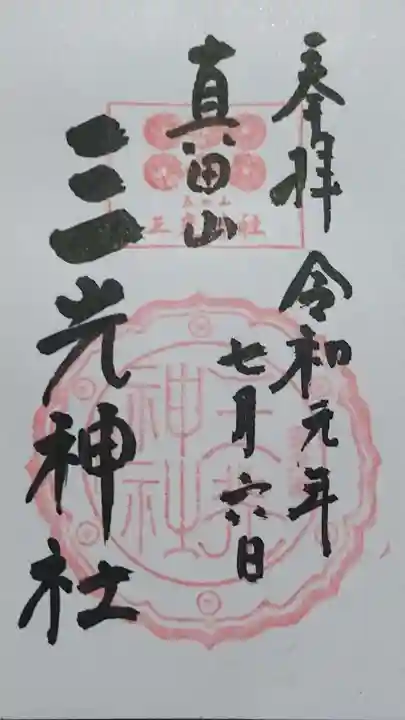 奉拝 令和元年
七月六日
真田山
三光神社
真田山
三光神社
三光
神社